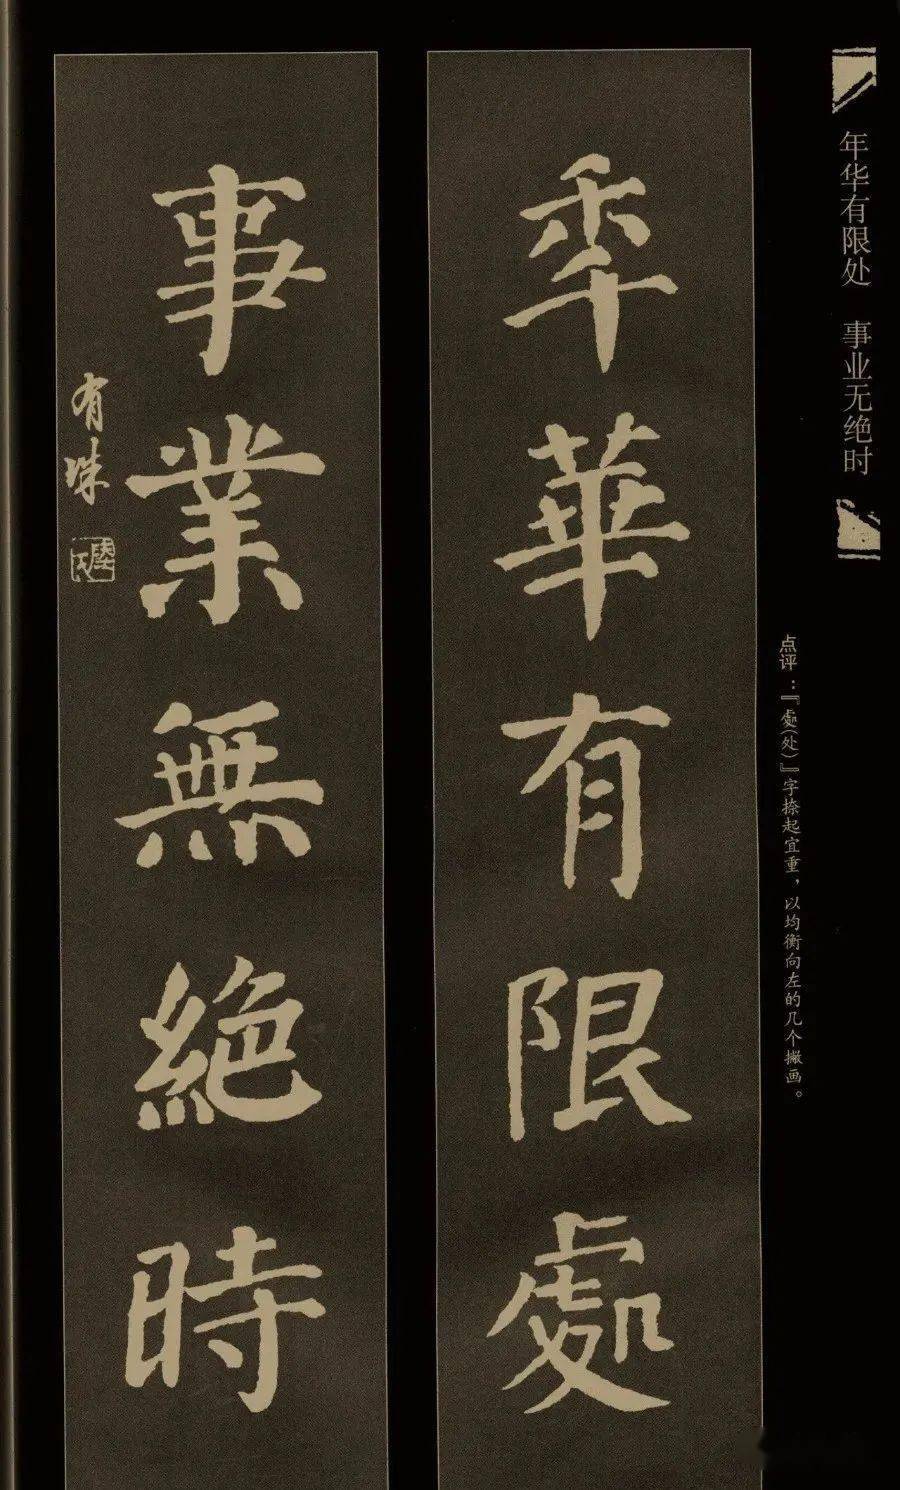 年华有限处 事业无绝时
点评：『處(处)』字捺起宜重，以均衡向左的几个撇画。
季華有限處
事業無絕時
有珠